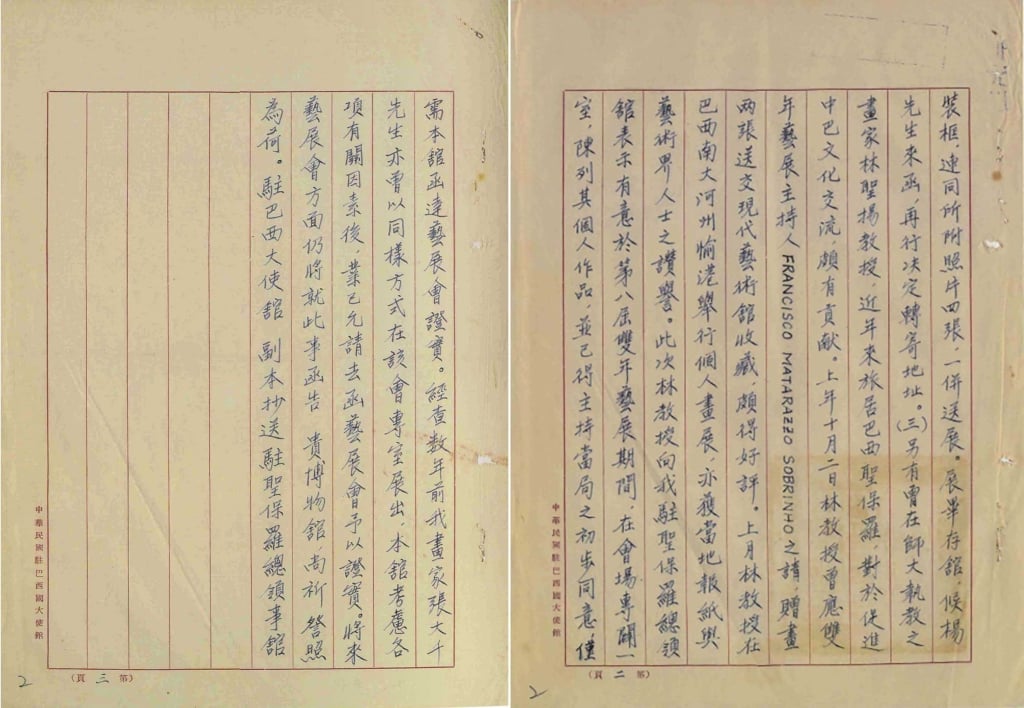 裝框，連同所附照片四張，一併送展。展畢存館，候楊
先生來函，再行決定轉寄地址。(三)另有曾在師大執教之
畫家林聖揚教授，近年來旅居巴西聖保羅，對於促進
中巴文化交流，頗有貢獻。上年十月二日林教授曾應雙
年藝展主持人 FRANCISCO MATARAZZO SOBRINHO 之請，贈畫
兩張送交現代藝術館收藏，頗得好評。上月林教授在
巴西南大河州愉港舉行個人畫展，亦獲當地報紙與
藝術界人士之讚譽。此次林教授向我駐聖保羅總領
館表示有意於第八屆雙年藝展期間，在會場專闢一
室，陳列其個人作品，並已得主持當局之初步同意，僅
中華民國駐巴西國大使館
(第二頁)
2
需本館函達藝展會證實。經查數年前我畫家張大千
先生亦曾以同樣方式在該會專室展出，本館考慮各
項有關因素後，業已允請去函藝展會予以證實。將來
藝展會方面仍將就此事函告 貴博物館，尚祈 詧照
為荷。駐巴西大使館 副本抄送駐聖保羅總領事館
中華民國駐巴西國大使館
(第三頁)
2